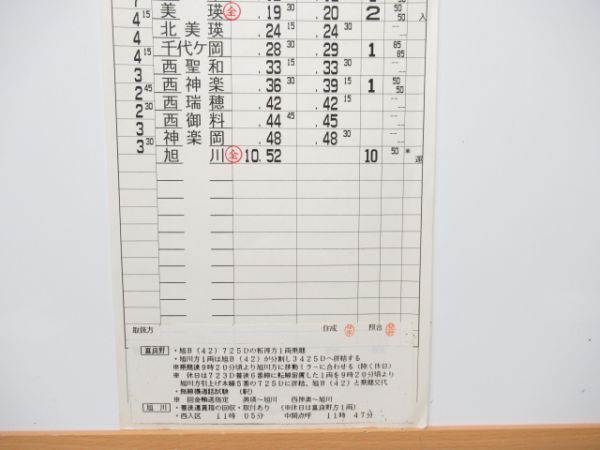 4 15 美瑛 ㊎ .19 30 .20 2 50 50 入
4 北美瑛 .24 15 .24 30
4 15 千代ケ岡 .28 30 .29 1 85 85
3 西聖和 .33 15 .33 30
2 45 西神楽 .36 30 .39 15 1 50 50
2 30 西瑞穂 .42 .42 15
3 西御料 .44 45 .45
3 30 神楽岡 .48 .48 30
旭川 10.52 10 50 *
取扱方 作成 照合
富良野 ・旭B(42)725Dの転得方1両乗継
・旭川方1両は旭B(42)が分割し3425Dへ併結する
※乗継後9時20分頃より旭川方に移動ミラーに合わせる(除く休日)
※ 休日は723D着後6番線に転線留置した1両を9時20分頃より
旭川方引上げ本線5番の725Dに併結、旭B(42)と乗継交代
・無線機通話試験 (駅)
※ 回金輸送指定 美瑛~旭川 西神楽~旭川
旭川 ・着後運賃箱の回収・取付あり (※休日は富良野方1両)
・西入区 11時05分 中間点呼 11時47分